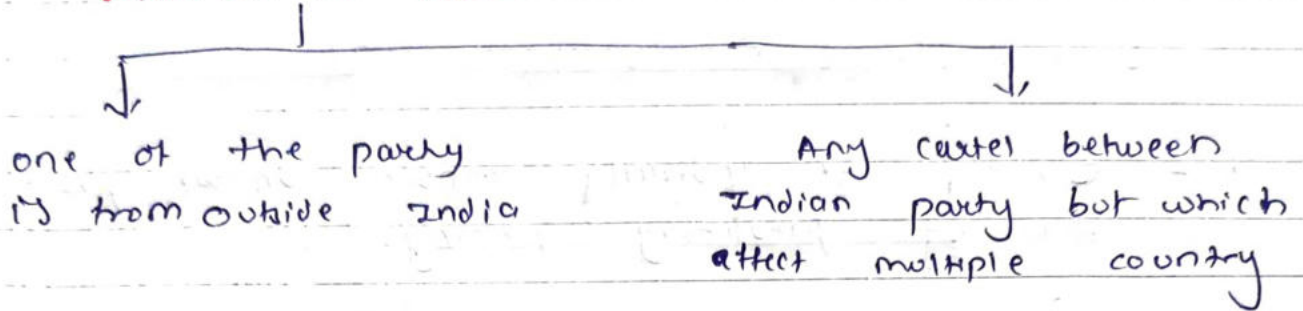 one of the party
is from outside India
Any cartel between
Indian party but which
affect multiple country